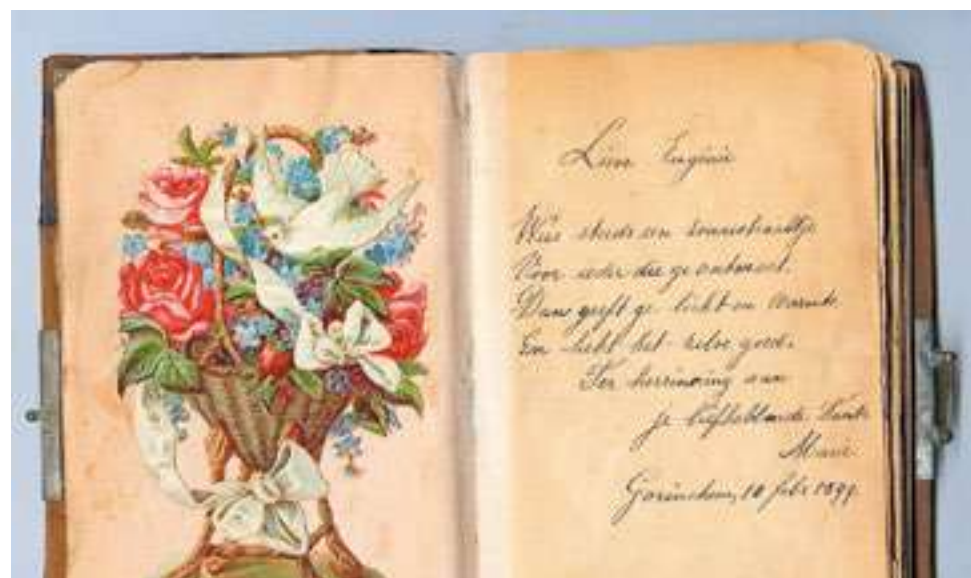 Lieve Eugénie
Wees steeds een zonnestraaltje
Voor ieder die ge ontmoet.
Dan geeft ge licht en warmte.
En hebt het zelve goed.
Ter herinnering aan
je liefhebbende Tante
Marie.
Gorinchem, 10 febr 1899.